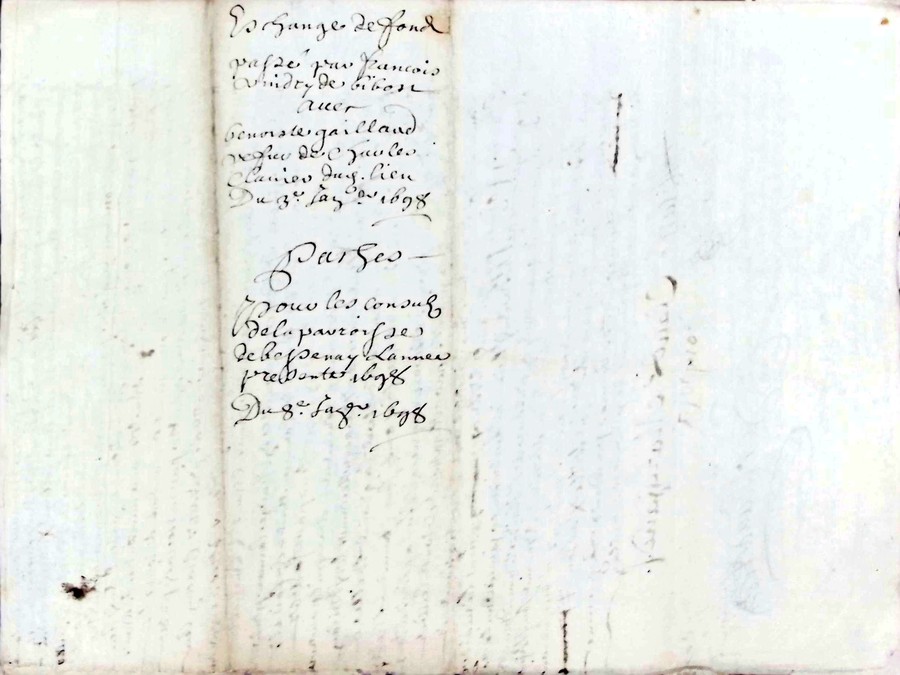 Eschange de fond
passé par francois
vindry de bibost
avec
benoiste gailland
vefve de Charles
Clavier dud. lieu
Du 3e. Janer. 1698
Paches
Pour les consulz
de la parroisse
de bessenay Lannee
presente 1698
Du 8e. Janer. 1698